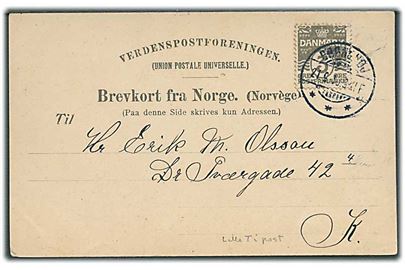 VERDENSPOSTFORENINGEN.
(UNION POSTALE UNIVERSELLE.)
DANMARK
Brevkort fra Norge. (Norvège)
(Paa denne Side skrives kun Adressen.)
Til
Hr Erik M. Olsson
Dr Tværgade 42 4
K.
Lille Ti post